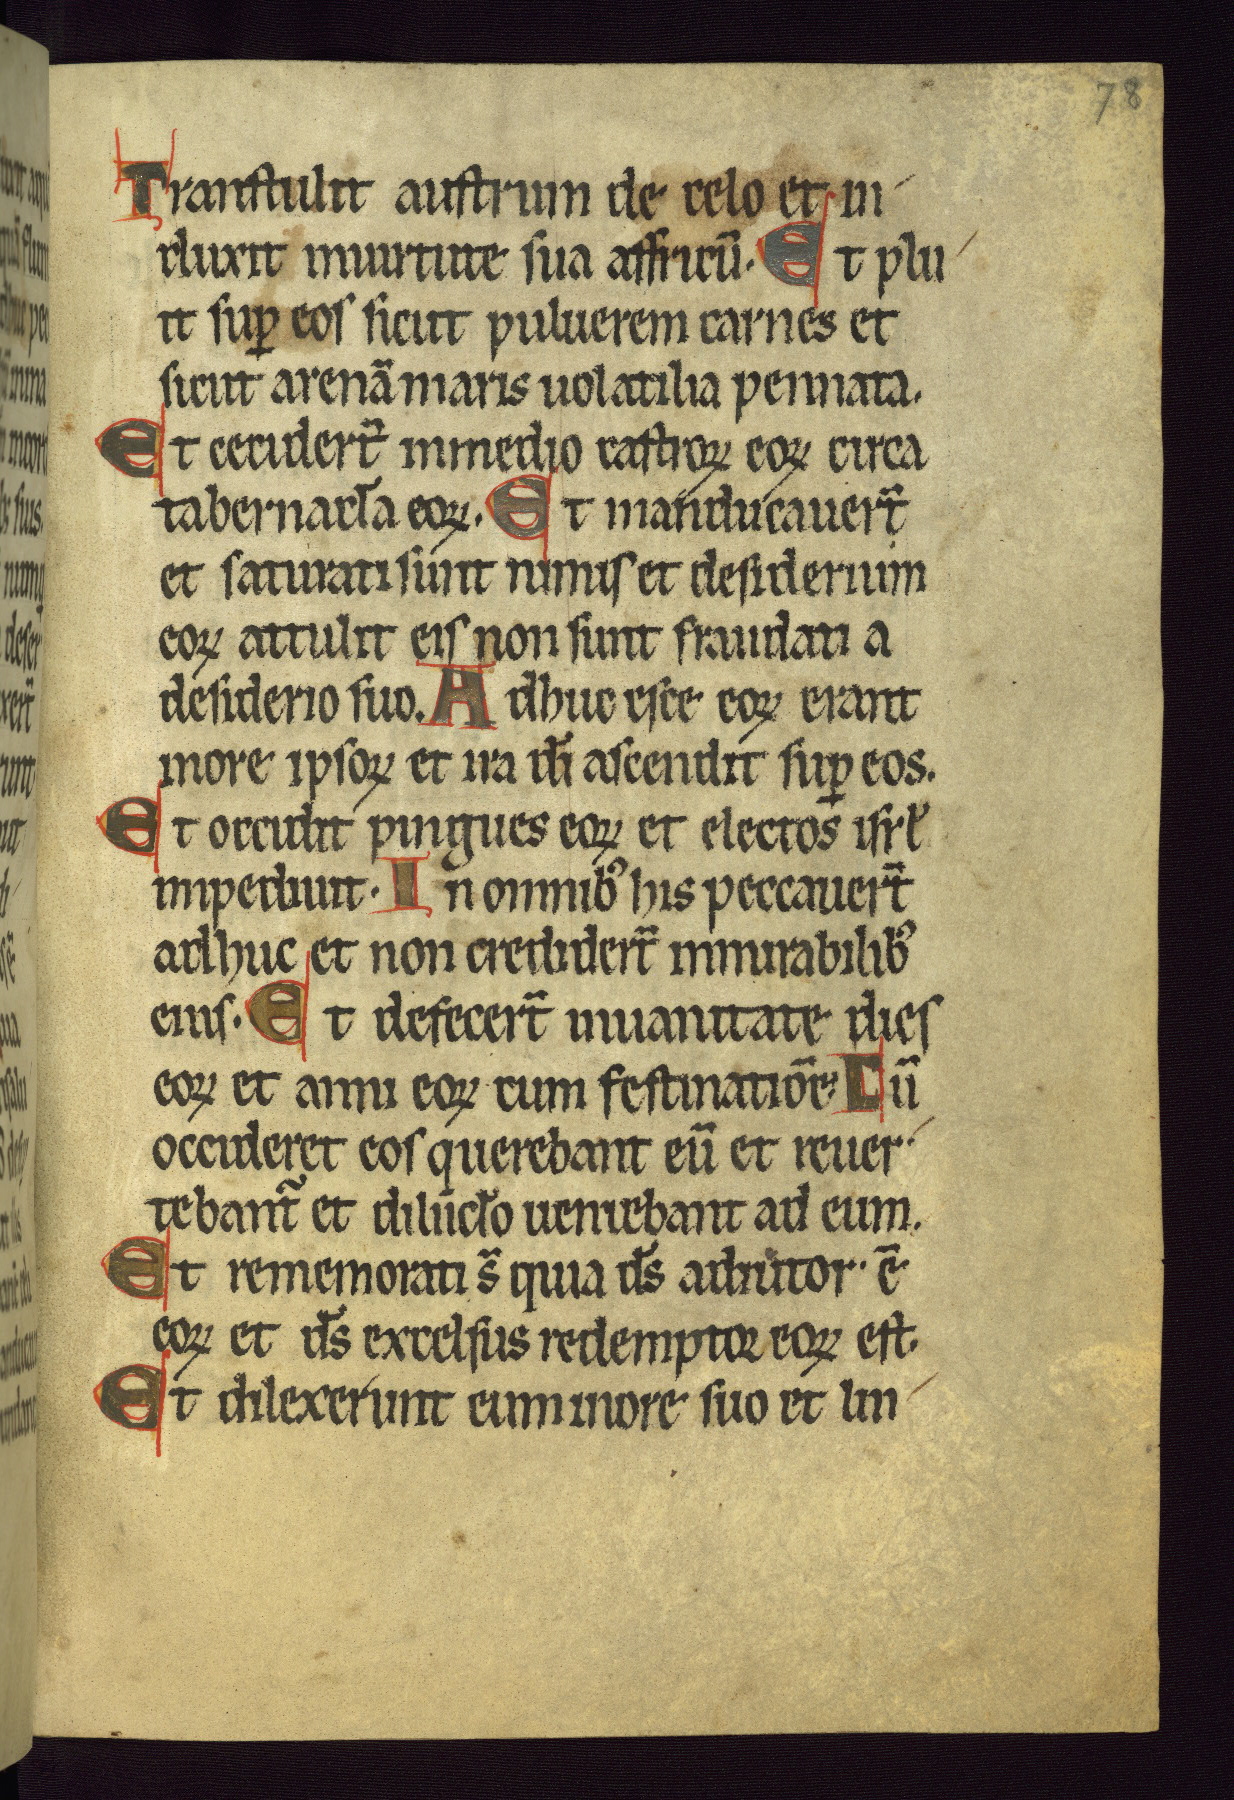 78
Tranſtulit auſtrum de celo et in
duxit inuirtute sua affricū. Et plu
it sup̱ eoſ ſicut puluerem carnes et
ſicut arenā maris uolatilia pennata.
Et cecider̄t inmedio caſtroꝝ eoꝝ circa
tabernacl̄a eoꝝ. Et manducauer̄t
et saturati sunt nimiſ et deſiderium
eoꝝ attulit eiſ non sunt fraudati a
deſiderio suo. Adhuc eſce eoꝝ erant
inore ipſoꝝ et ira dī ascendit ſup̱ eos.
Et occidit pingues eoꝝ et electos iſrl̄
impediuit. In omnibꝰ his peccauer̄t
adhuc et non credider̄t inmirabilibꝰ
eiuſ. Et defecer̄t inuanitate dieſ
eoꝝ et anni eoꝝ cum feſtinatiōe. Cū
occideret eoſ querebant eū et reuer
tebant̄ et dilūcl̄o ueniebant ad eum.
Et rememorati s̄ quia ds̄ adiutor ē
eoꝝ et ds̄ excelſus redemptor eoꝝ eſt.
Et dilexerunt eum inore suo et lin